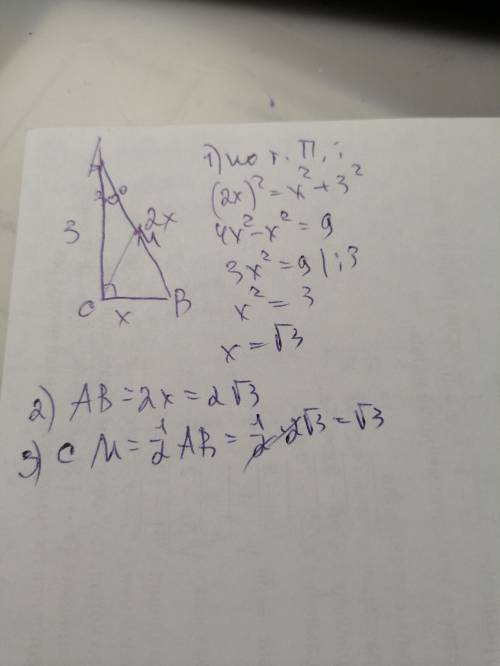 A
30°
3
2x
M
C
x
B
1) по т. П.:
(2x)² = x² + 3²
4x² - x² = 9
3x² = 9 | :3
x² = 3
x = √3
2) AB = 2x = 2√3
3) CM = 1/2 AB = 1/2 · 2√3 = √3